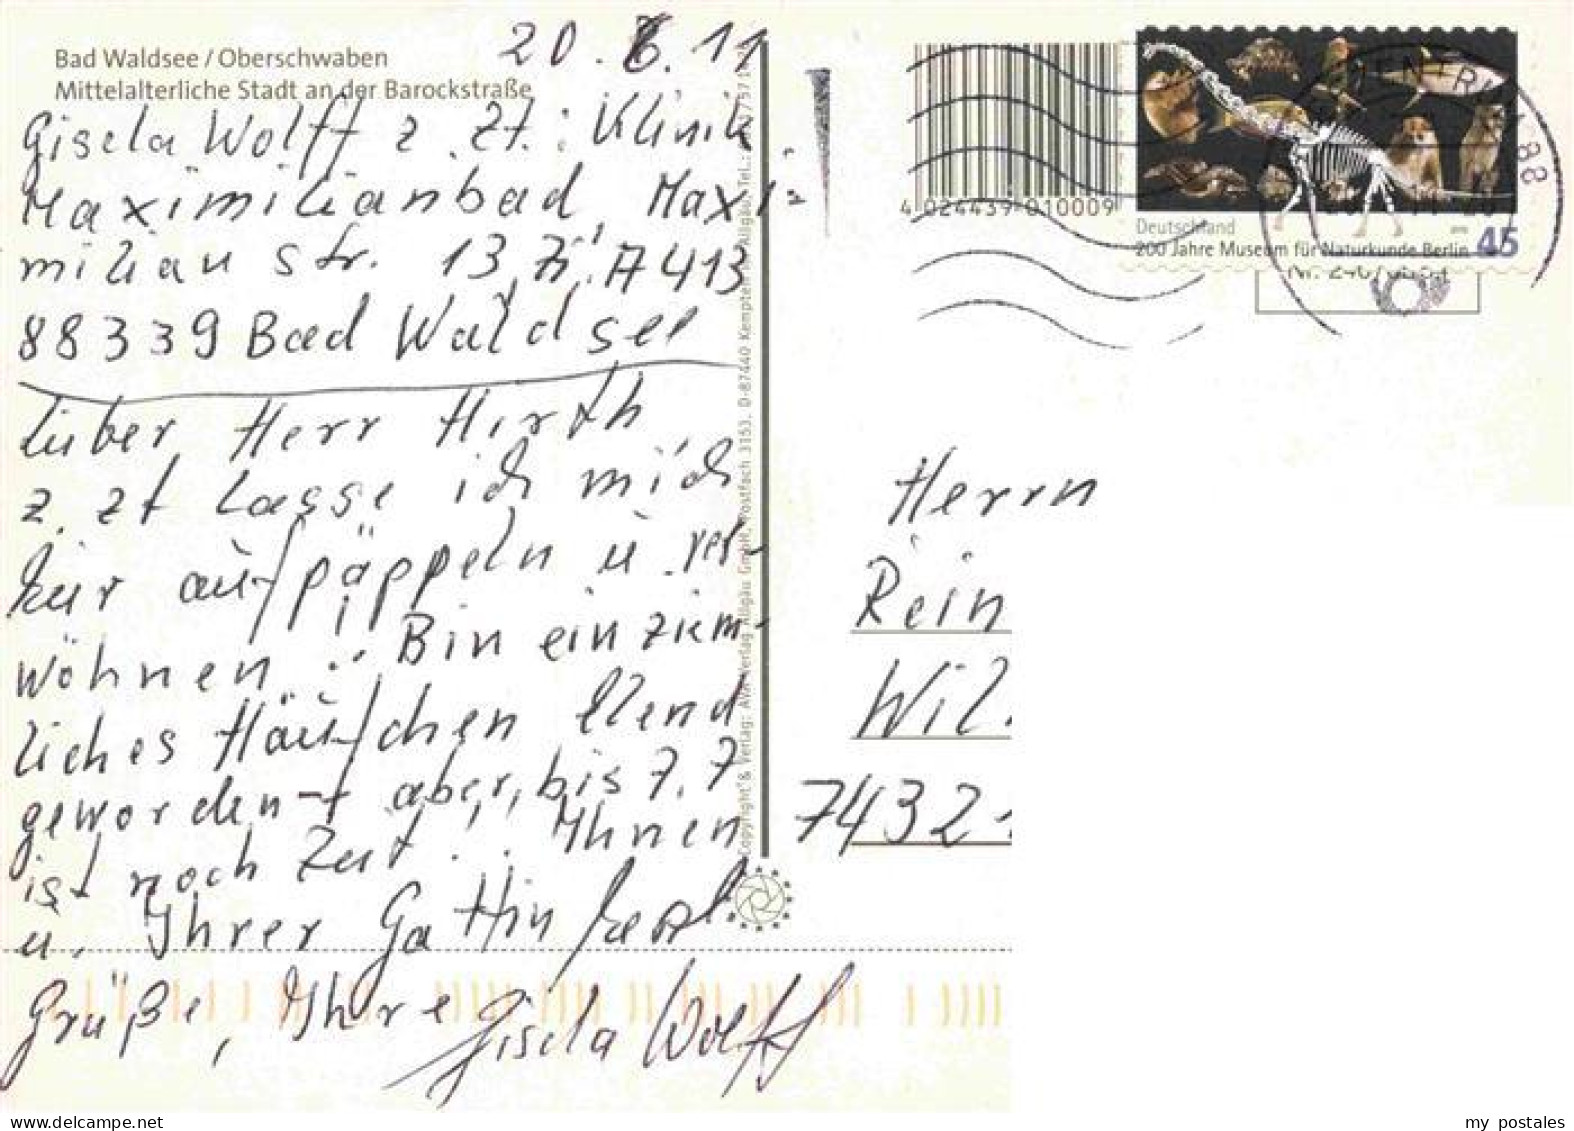 Bad Waldsee / Oberschwaben
Mittelalterliche Stadt an der Barockstraße
20. 6. 11
Gisela Wolff z. Zt.: Klinik
Maximilianbad, Maxi-
milian str. 13, Zi. A 413
88339 Bad Waldsee
Lieber Herr Hirth
z. zt lasse ich mich
hier aufpäppeln u. ver-
wöhnen .. Bin ein ziem-
liches Häufchen Elend
geworden - aber, bis 7.7
ist noch Zeit .. Ihnen
u. Ihrer Gattin herzl
Grüße, Ihre Gisela Wolff
4 024439 010009
Deutschland
200 Jahre Museum für Naturkunde Berlin 45
BRIEFZENTRUM 88
Herrn
Rein
Wil
74321
Copyright & Verlag: AVA-Verlag Allgäu GmbH, Postfach 3153, D-87440 Kempten / Allgäu, Tel.:
my postales
delcampe.net